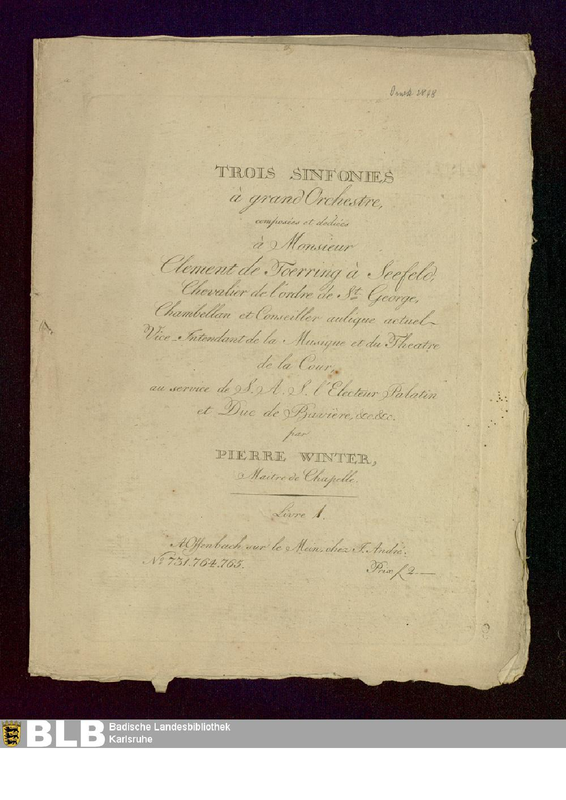 TROIS SINFONIES
à grand Orchestre,
composées et dediées
à Monsieur
Clement de Toerring à Seefeld,
Chevalier de l'ordre de St. George,
Chambellan et Conseiller aulique actuel
Vice-Intendant de la Musique et du Theatre
de la Cour
au service de S. A. S. l'Electeur Palatin
et Duc de Baviere, &c &c.
par
PIERRE WINTER,
Maitre de Chapelle.
Livre 1.
A Offenbach sur le Mein, chez J. André.
No. 731. 764. 765.
Prix f 2
BLB
Badische Landesbibliothek
Karlsruhe